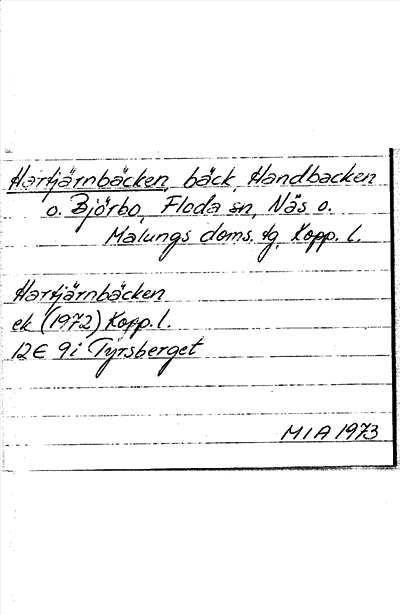 Hartjärnbäcken, bäck, Handbacken
o. Björbo, Floda sn, Nås o.
Malungs doms. tg, Kopp. l.
Hartjärnbäcken
ek (1972) Kopp. l.
12E 9i Tyrsberget
MIA 1973